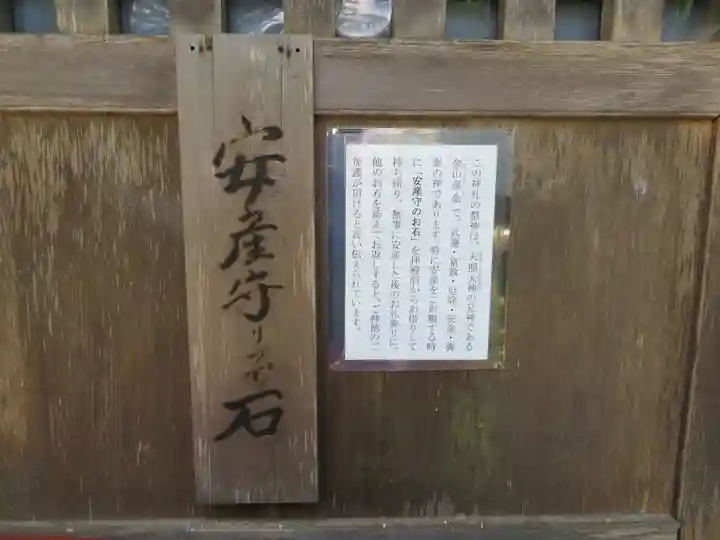 この神社の祭神は、天照大神の兄神である
金山彦命で、武運・富敷・厄除・安産・養
蚕の神であります。特に安産をご祈願する時
に「安産守のお石」を拝殿前からお借りして
持ち帰り、無事に安産した後のお礼参りに、
他のお石を添えてお返しすると、ご神徳のご
加護が頂けると言い伝えられています。
安産守りのお石